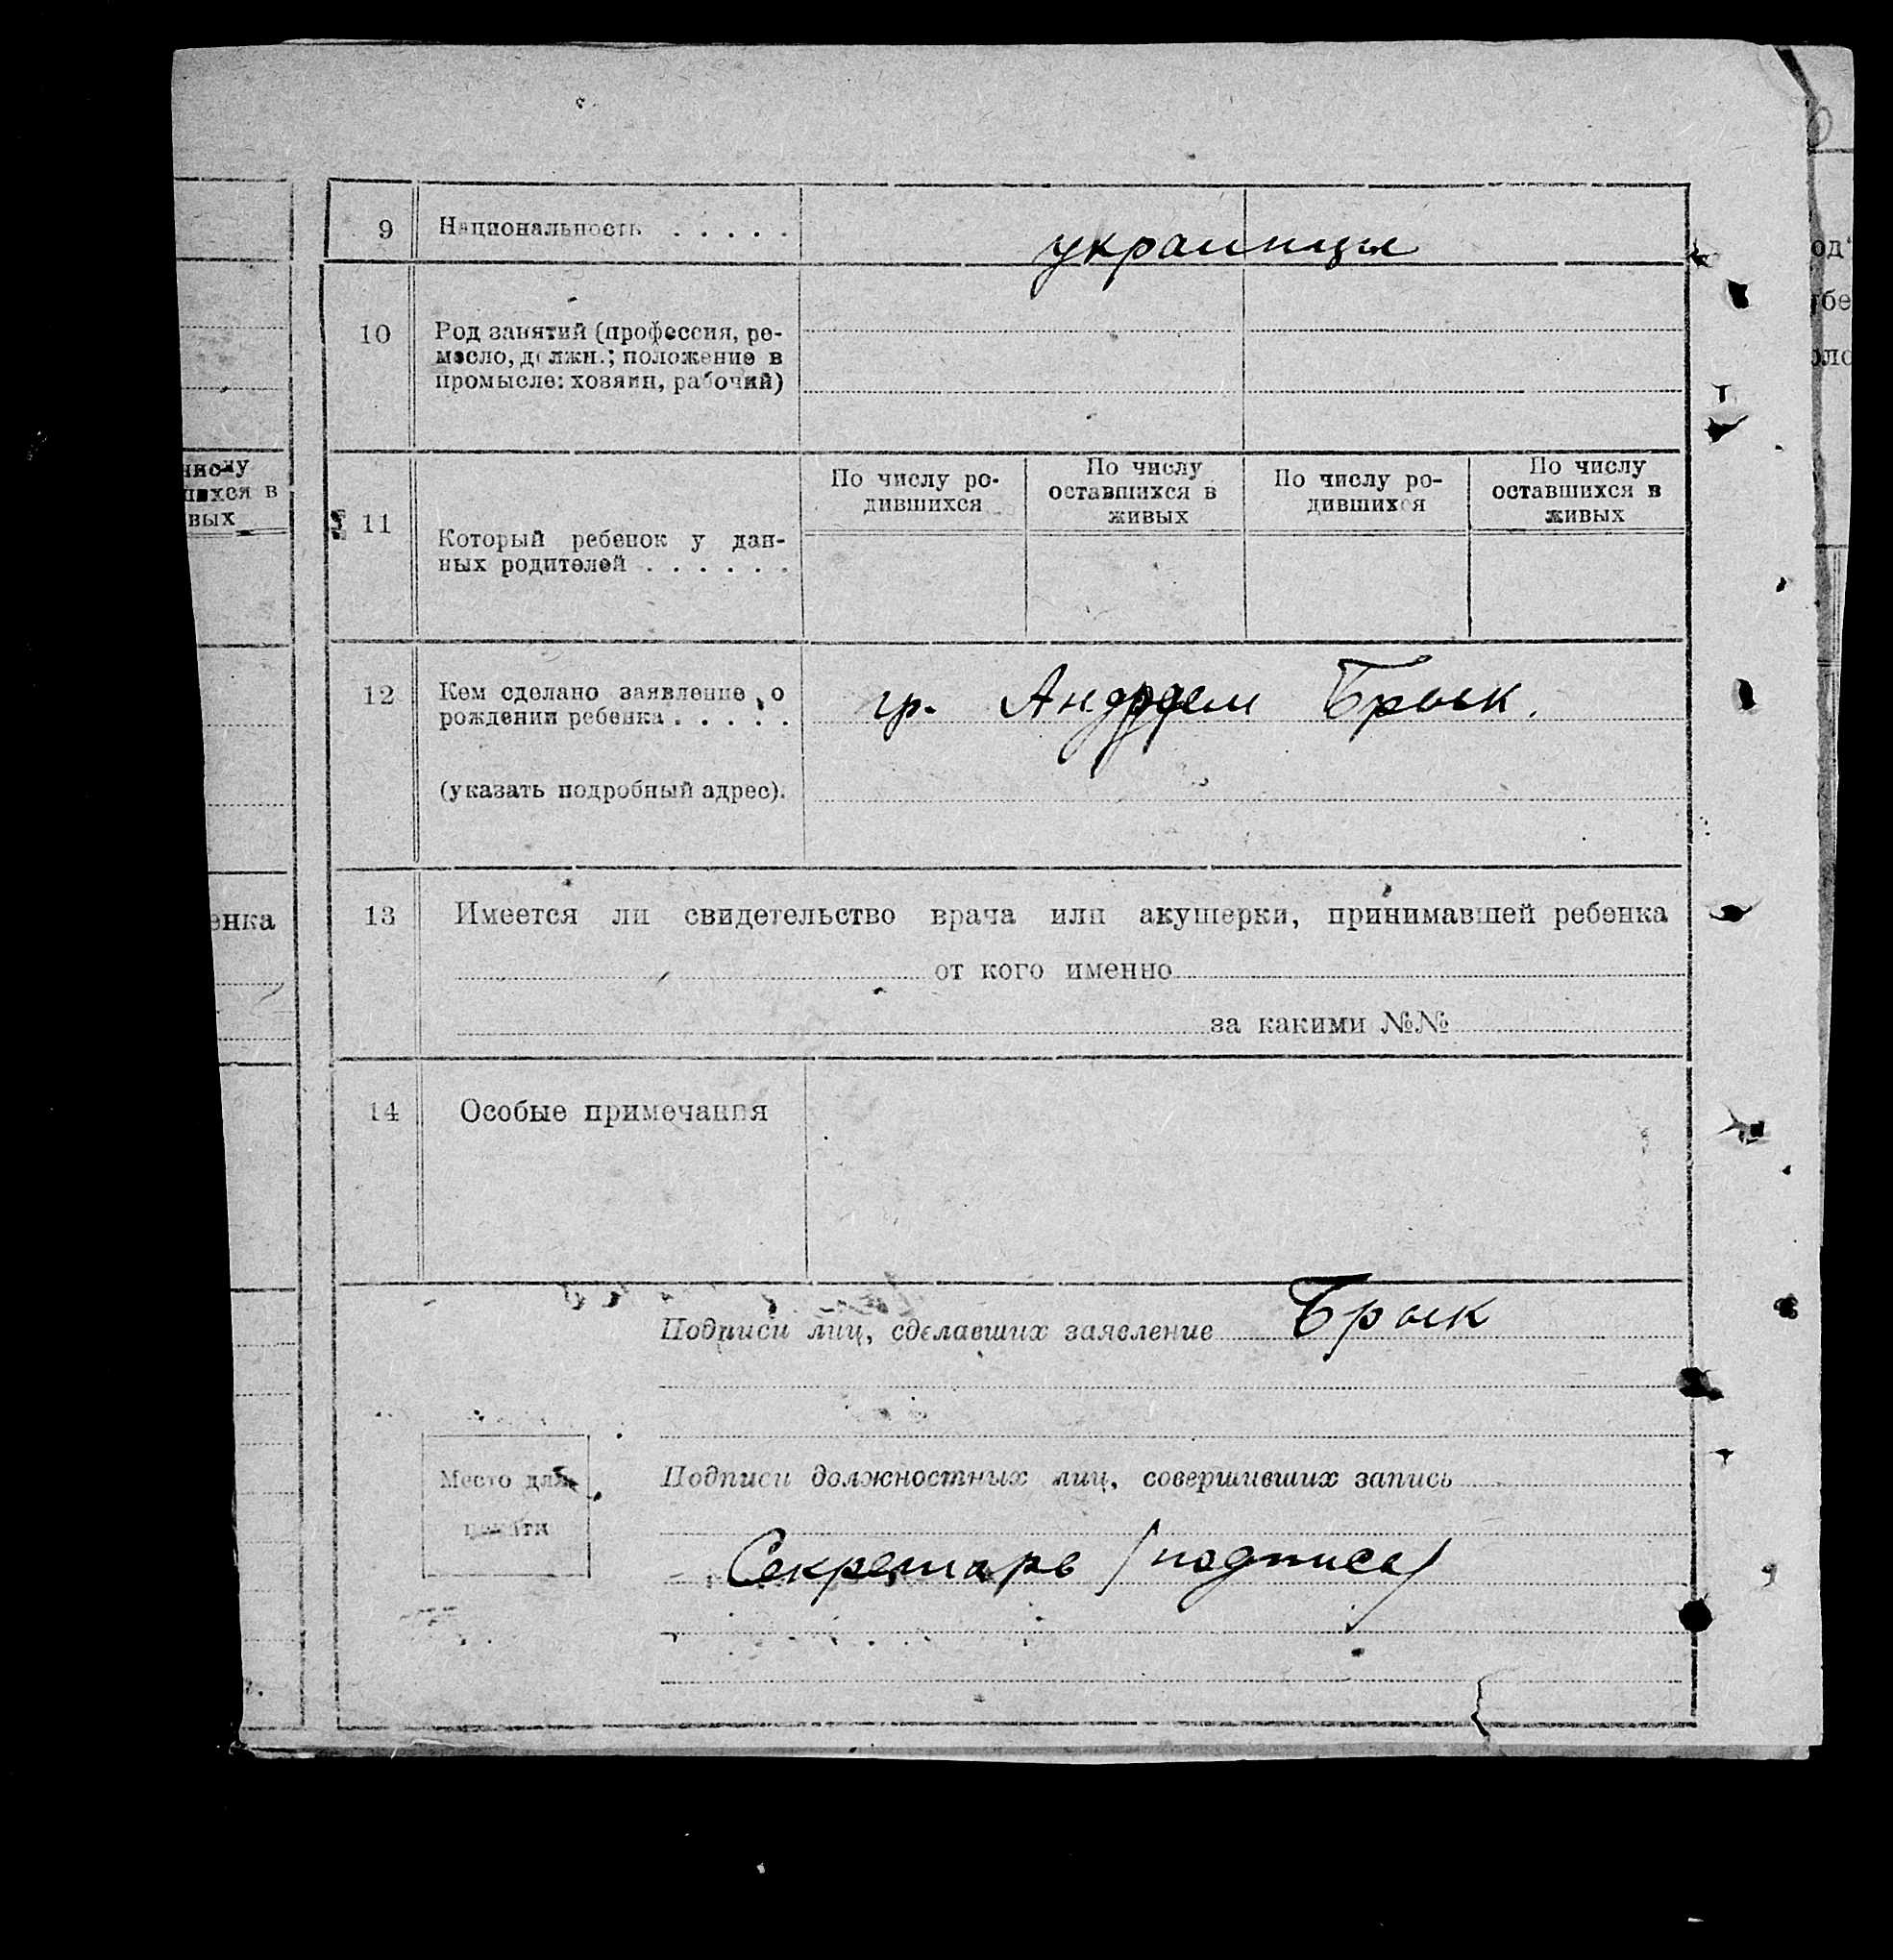 9 Национальность . . . . . украинцы
10 Род занятий (профессия, ре-
месло, должн.; положение в
промысле: хозяин, рабочий)
11 Который ребенок у дан-
ных родителей . . . . . .
По числу ро-
дившихся
По числу
оставшихся в
живых
По числу ро-
дившихся
По числу
оставшихся в
живых
12 Кем сделано заявление о
рождении ребенка . . . . .
(указать подробный адрес).
гр. Андреем Брык.
13 Имеется ли свидетельство врача или акушерки, принимавшей ребенка
от кого именно
за какими №№
14 Особые примечания
Подписи лиц, сделавших заявление Брык
Место для
печати
Подписи должностных лиц, совершивших запись
Секретарь /подпись/
числу
в
вых
енка